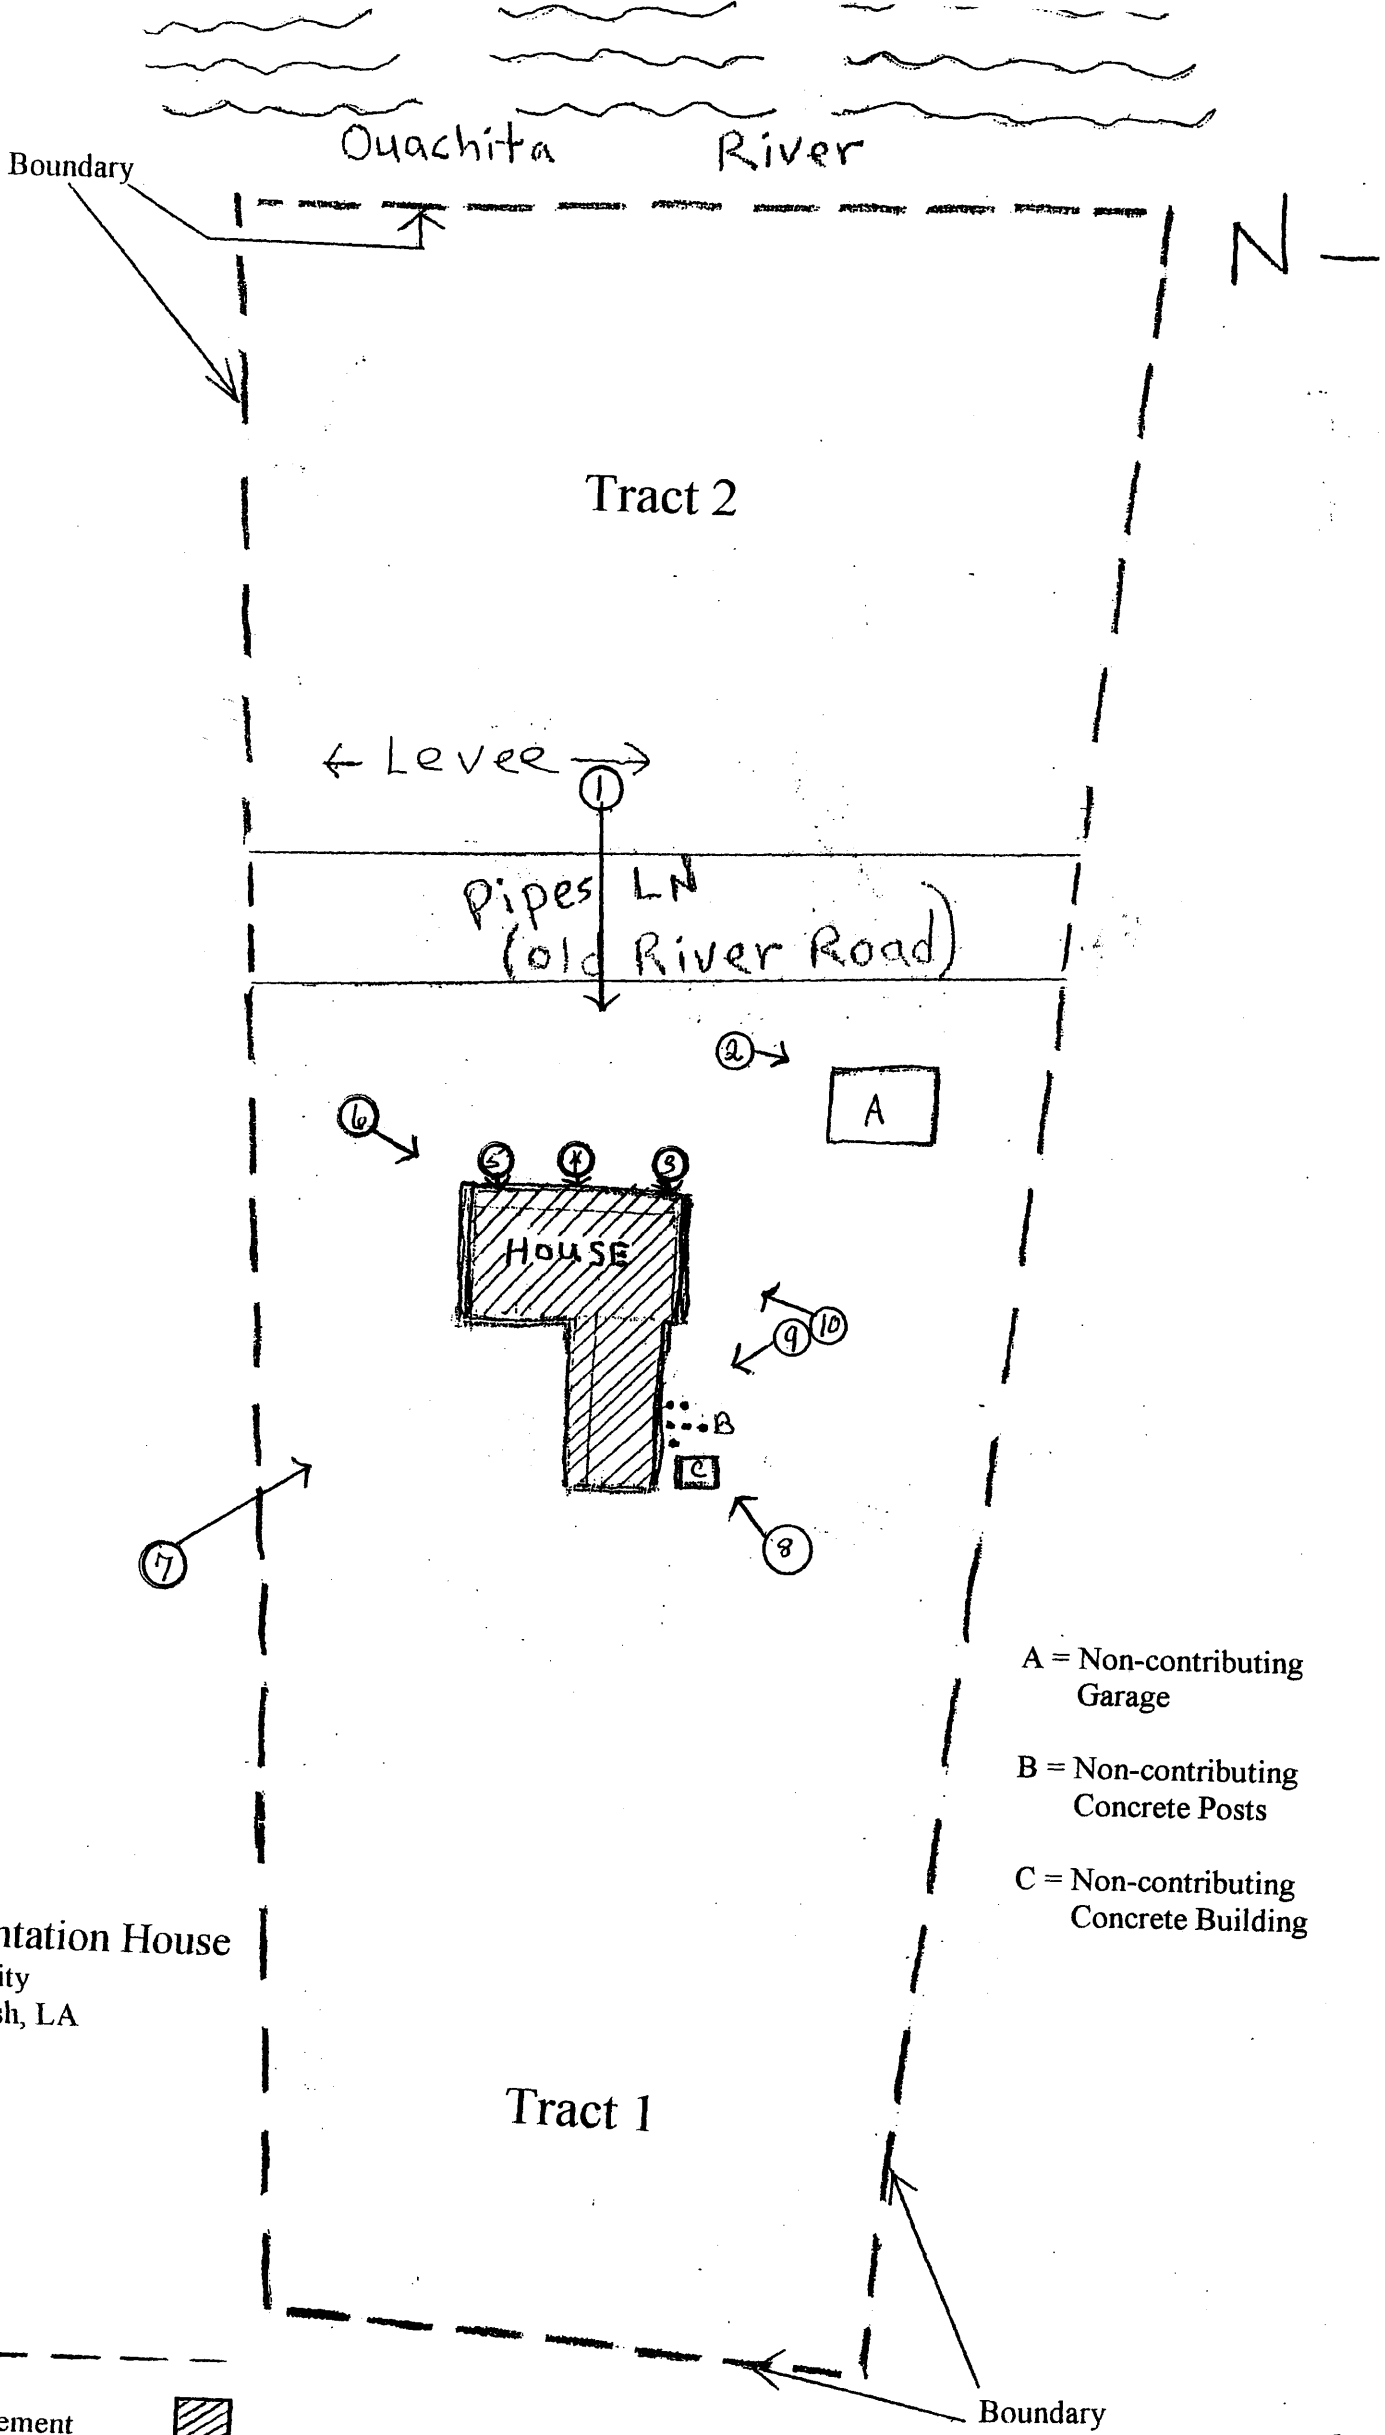 Ouachita River
Boundary
N
Tract 2
← Levee →
1
Pipes LN
(old River Road)
2
A
6
5 4 3
HOUSE
10
9
B
C
7
8
A = Non-contributing
Garage
B = Non-contributing
Concrete Posts
C = Non-contributing
Concrete Building
ntation House
ity
sh, LA
Tract 1
Boundary
ement